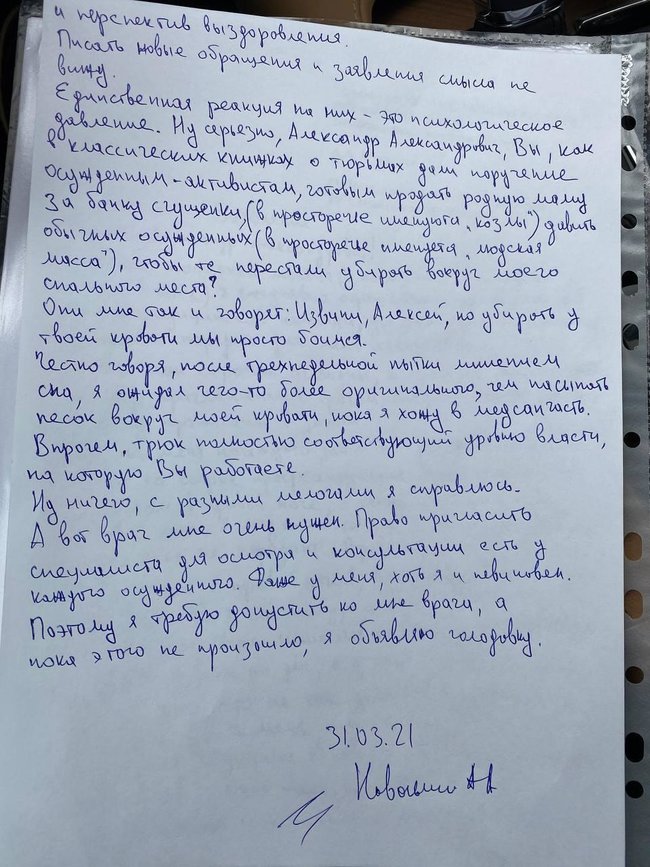 и перспектив выздоровления.
Писать новые обращения и заявления смысла не
вижу.
Единственная реакция на них - это психологическое
давление. Ну серьезно, Александр Александрович, Вы, как
в классических книжках о тюрьмах дали поручение
осужденным-активистам, готовым продать родную маму
за банку сгущенки, (в просторечие именуются „козлы") давить
обычных осужденных (в просторечье именуется „людская
масса"), чтобы те перестали убирать вокруг моего
спального места?
Они мне так и говорят: Извини, Алексей, но убирать у
твоей кровати мы просто боимся.
Честно говоря, после трехнедельной пытки лишением
сна, я ожидал чего-то более оригинального, чем насыпать
песок вокруг моей кровати, пока я хожу в медсанчасть.
Впрочем, трюк полностью соответствующий уровню власти,
на которую Вы работаете.
Ну ничего, с разными мелочами я справлюсь.
А вот врач мне очень нужен. Право пригласить
специалиста для осмотра и консультации есть у
каждого осужденного. Даже у меня, хоть я и невиновен.
Поэтому я требую допустить ко мне врача, а
пока этого не произошло, я объявляю голодовку.
31.03.21
Навальный АА